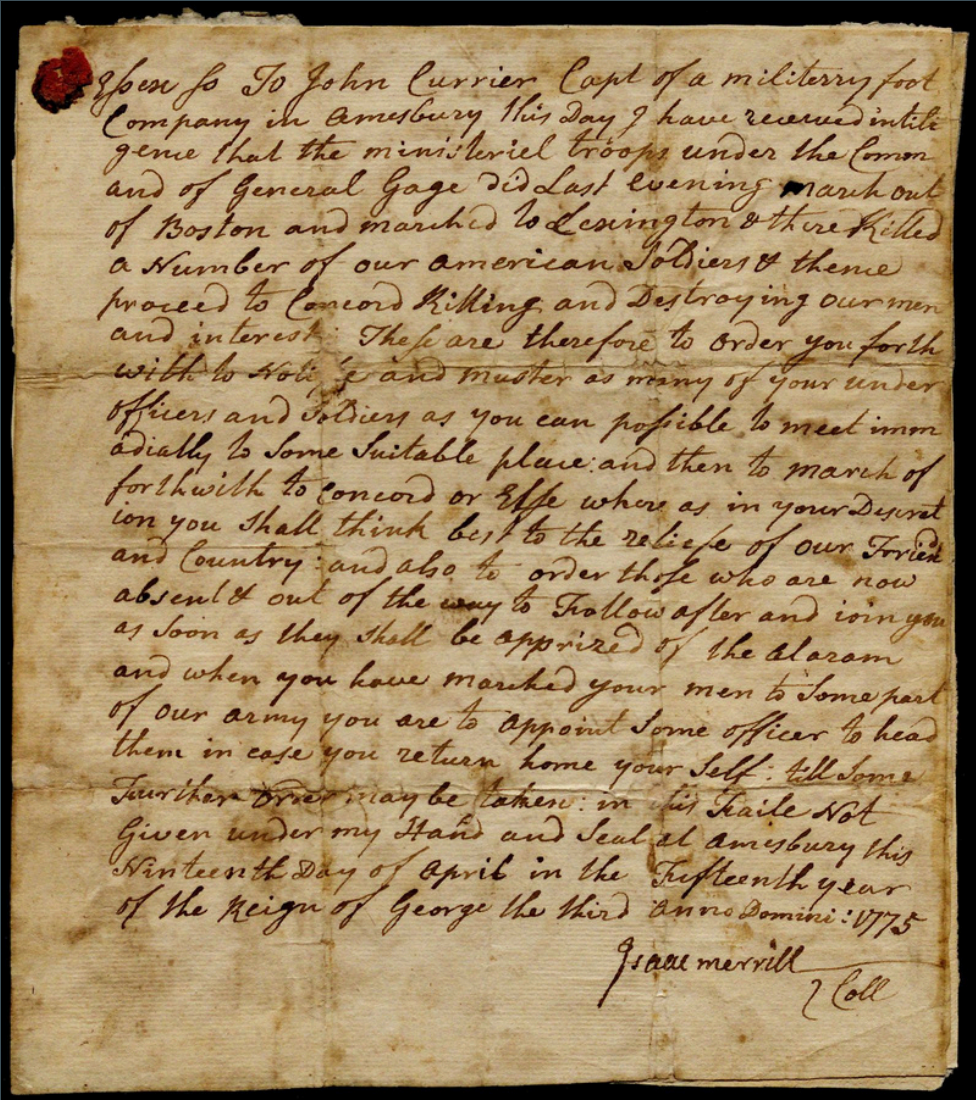 Essex ss To John Currier Capt of a militerry foot
Company in Amesbury this Day I have receved intili
gence that the ministeriel troops under the Comm
and of General Gage did Last evening march out
of Boston and marched to Lexington & there Killed
a Number of our American Soldiers & thence
proceed to Concord Killing and Destroying our men
and interest: These are therefore to order you forth
with to Notife and muster as many of your under
officers and Soldiers as you can possible to meet imm
adially to Some Suitable place: and then to march of
forthwith to Concord or Else where as in your Descret
ion you Shall think best to the reliefe of our Friend
and Country: and also to order those who are now
absent & out of the way to Follow after and ioin you
as Soon as they shall be apprized of the Alaram
and when you have marched your men to Some part
of our army you are to appoint Some officer to head
them in case you return home your Self: till Some
Further order may be taken: in this Faile Not
Given under my Hand and Seal at Amesbury this
Ninteenth Day of April in the Fifteenth year
of the Reign of George the third Anno Domini: 1775
Isaac merrill
Coll